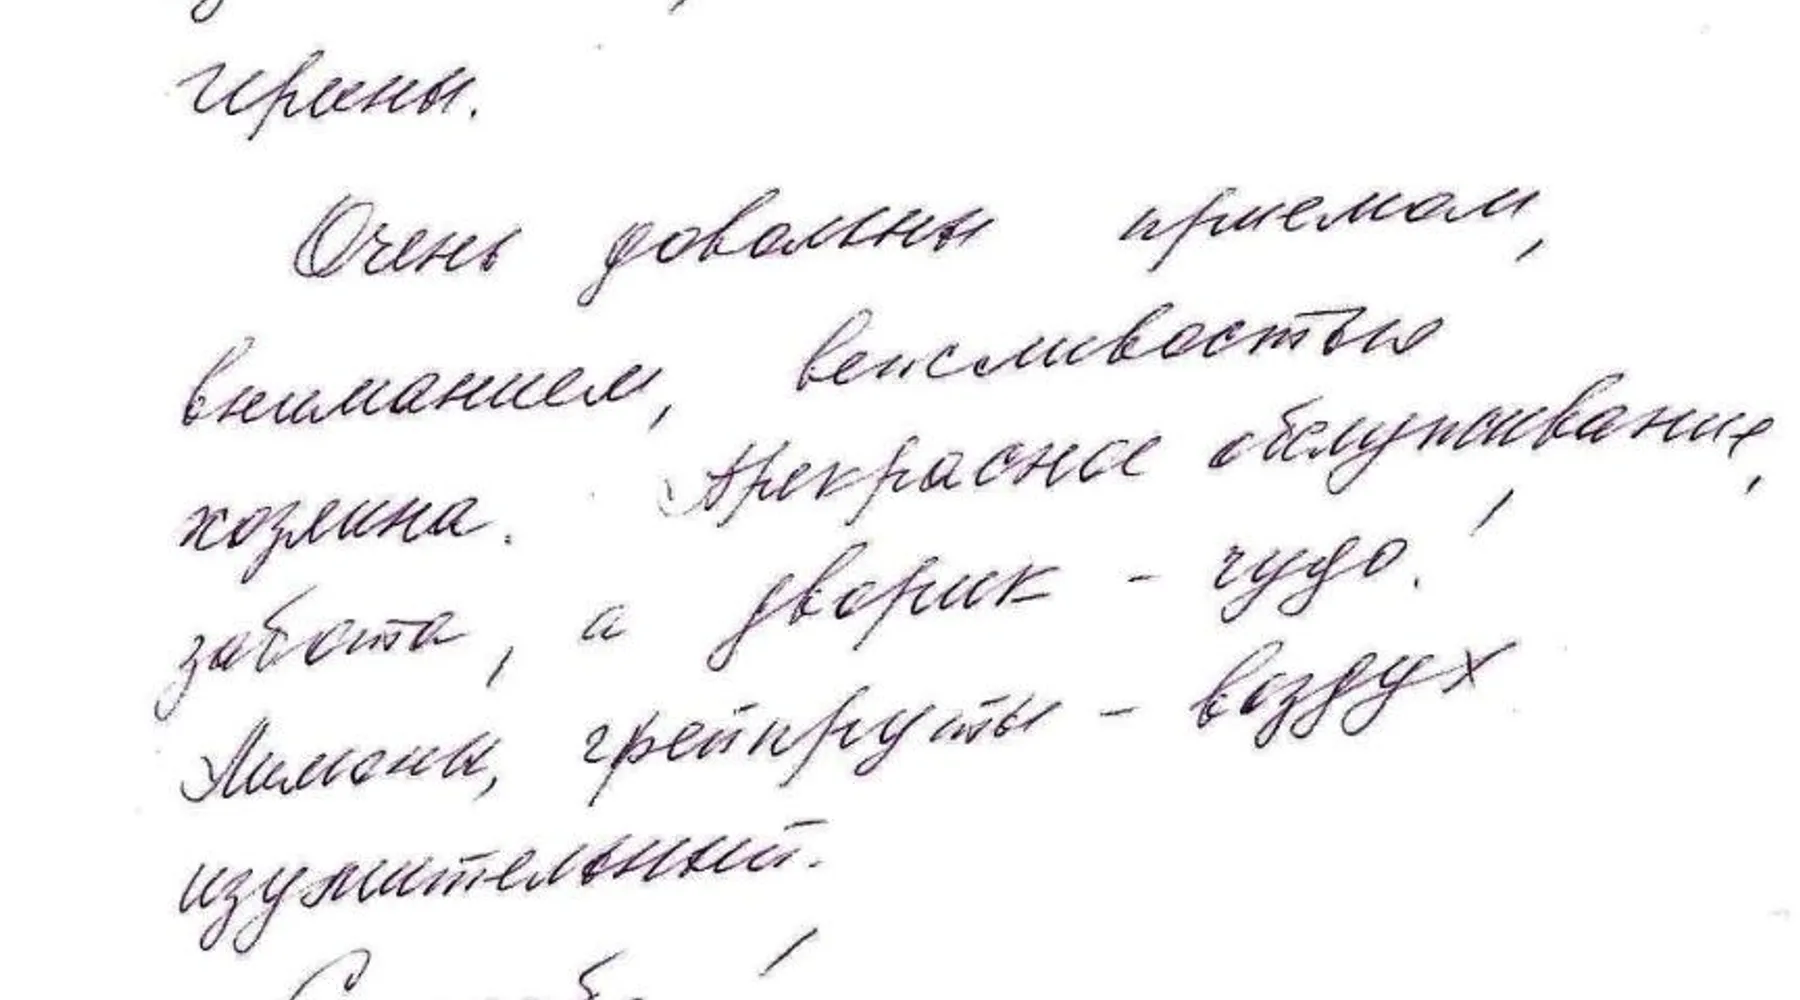 Ирины.
Очень довольны приемом,
вниманием, вежливостью
хозяина. Прекрасное обслуживание,
забота, а дворик - чудо!
Лимоны, грейпруты - воздух
изумительный.